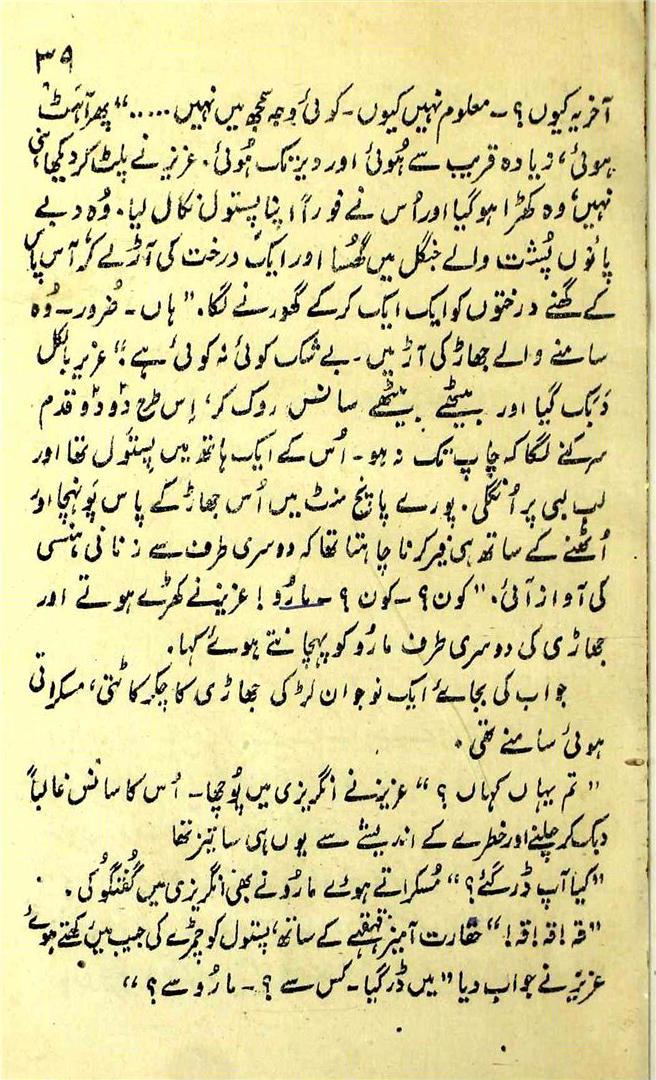 ۳۹
آخر یہ کیوں؟ ۔ معلوم نہیں کیوں ۔ کوئی وجہ سمجھ میں نہیں ....." پھر آہٹ
ہوئی، زیادہ قریب سے ہُوئی اور دیر تک ہُوئی ۔ عزیز نے پلٹ کر دیکھا ہی
نہیں، وہ کھڑا ہو گیا اور اُس نے فوراً اپنا پستول نکال لیا ۔ وُہ دبے
پاؤں پُشت والے جنگل میں گھُسا اور ایک درخت کی آڑ لے کر، آس پاس
کے گھنے درختوں کو ایک ایک کر کے گھورنے لگا ۔ "ہاں ۔ ضرور ۔ وُہ
سامنے والے جھاڑ کی آڑ میں ۔ بے شک کوئی نہ کوئی ہے ۔" عزیز بالکل
دَبک گیا اور بیٹھے بیٹھے سانس روک کر، اِس طرح دُو دُو قدم
سرکنے لگا کہ چاپ تک نہ ہو ۔ اُس کے ایک ہاتھ میں پستول تھا اور
لب لبی پر اُنگلی ۔ پورے پانچ منٹ میں اُس جھاڑ کے پاس پَونہچا اور
اُٹھنے کے ساتھ ہی فیر کرنا چاہتا تھا کہ دوسری طرف سے زنانی ہنسی
کی آواز آئی ۔ "کون؟ ۔ کون؟ ۔ مارُو! عزیز نے کھڑے ہوتے اور
جھاڑی کی دوسری طرف مارُو کو پہچانتے ہوئے کہا ۔
جواب کی بجائے ایک نوجوان لڑکی جھاڑی کا چکر کاٹتی، مسکراتی
ہوئی سامنے تھی ۔
"تم یہاں کہاں؟" عزیز نے انگریزی میں پُوچھا ۔ اُس کا سانس غالباً
دبک کر چلنے اور خطرے کے اندیشے سے یوں ہی سا تیز تھا
"کیا آپ ڈر گئے؟" مُسکراتے ہوئے مارُو نے بھی انگریزی میں گُفتگو کی ۔
"قہ! قہ! قہ!" حقارت آمیز قہقہے کے ساتھ، پستول کو چمڑے کی جیب میں رکھتے ہوئے
عزیز نے جواب دیا "میں ڈر گیا ۔ کس سے؟ ۔ مارُو سے؟"